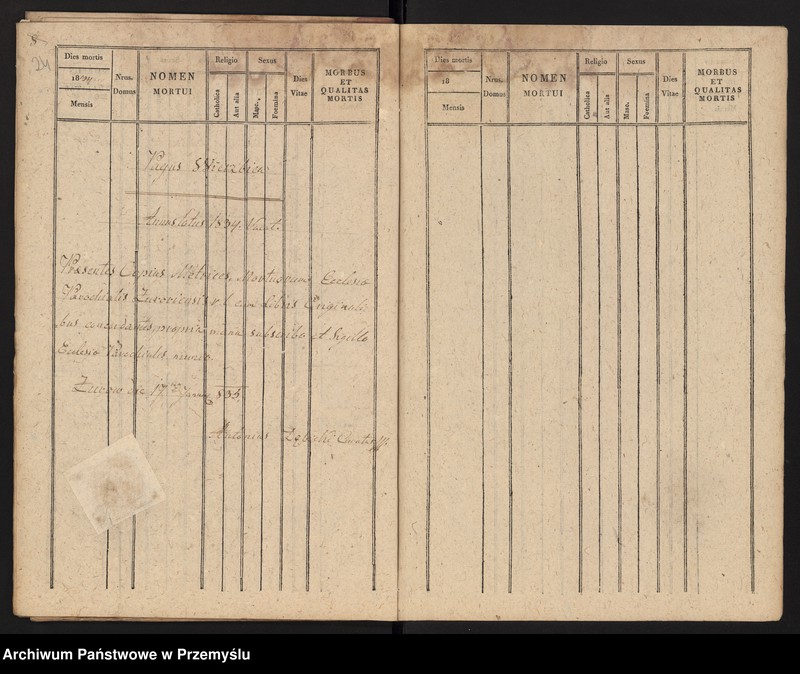 8
24
Dies mortis
1834
Mensis
Nrus. Domus
NOMEN
MORTUI
Religio
Catholica
Aut alia
Sexus
Masc.
Foemina
Dies
Vitae
MORBUS
ET
QUALITAS
MORTIS
Pagus
Annus 1834. Vacat.
Praesentes Copias Metrices Mortuorum Ecclesiae
Parochialis Zuroviensis r. l. cum Libris Originali
bus concordantes propria manu subscribo et Sigillo
Ecclesiae Parochialis munio.
Zurow die 17 Januarii 835
Antonius
Dies mortis
18
Mensis
Nrus.
Domus
NOMEN
MORTUI
Religio
Catholica
Aut alia
Sexus
Masc.
Foemina
Dies
Vitae
MORBUS
ET
QUALITAS
MORTIS
Archiwum Państwowe w Przemyślu